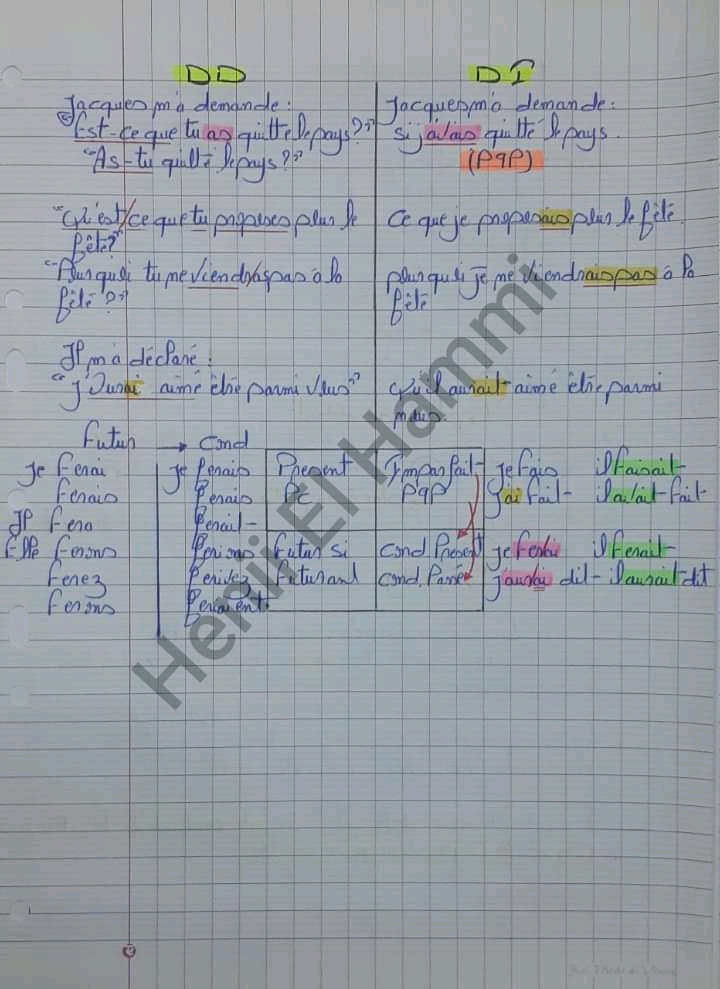 DD DI
Jacques m'a demande : Jacques m'a demande :
"Est-ce que tu as quitte le pays ?" si j'avais quitté le pays.
"As-tu quitté le pays ?" (PqP)
"Qu'est/ce que tu proposes plus le Ce que je proposais plus le fêté.
fête?"
"Pourquoi tu me viendras pas à la pourquoi je me viendrais pas à la
fêté ?" fêté
Il m'a déclaré :
"j'aurai aimé être parmi vous" qu'il aurait aimé être parmi
nous.
Futur → Cond
Je Ferai Je Ferais Present Imparfait Je Fais il Faisait
Feras Ferais PC PqP J'ai fait il avait fait
Il Fera Ferait
Elle Ferons Ferions Futur si Cond. Présent Je Ferai il Ferait
Ferez Feriez Futur ant cond. Passé J'aurai dit il aurait dit
Ferons Feraient
Henii El Hammi